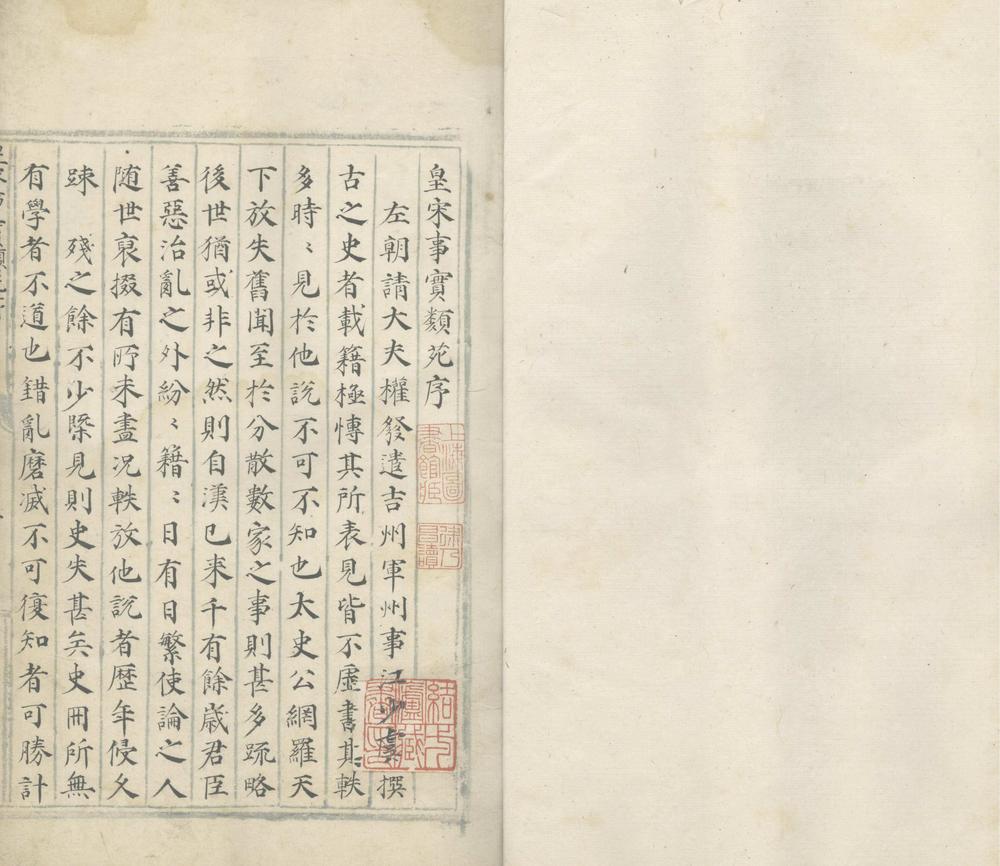 皇宋事實類苑序
左朝請大夫權發遣吉州軍州事江少虞撰
古之史者載籍極愽其所表見皆不虛書其軼
多時〻見於他說不可不知也太史公網羅天
下放失舊聞至於分散數家之事則甚多疏略
後世猶或非之然則自漢已來千有餘歲君臣
善惡治亂之外紛〻籍〻日有日繁使論之人
随世裒掇有所未盡况軼放他說者歷年侵久
踈 殘之餘不少槩見則史失甚矣史冊所無
有學者不道也錯亂磨滅不可復知者可勝計